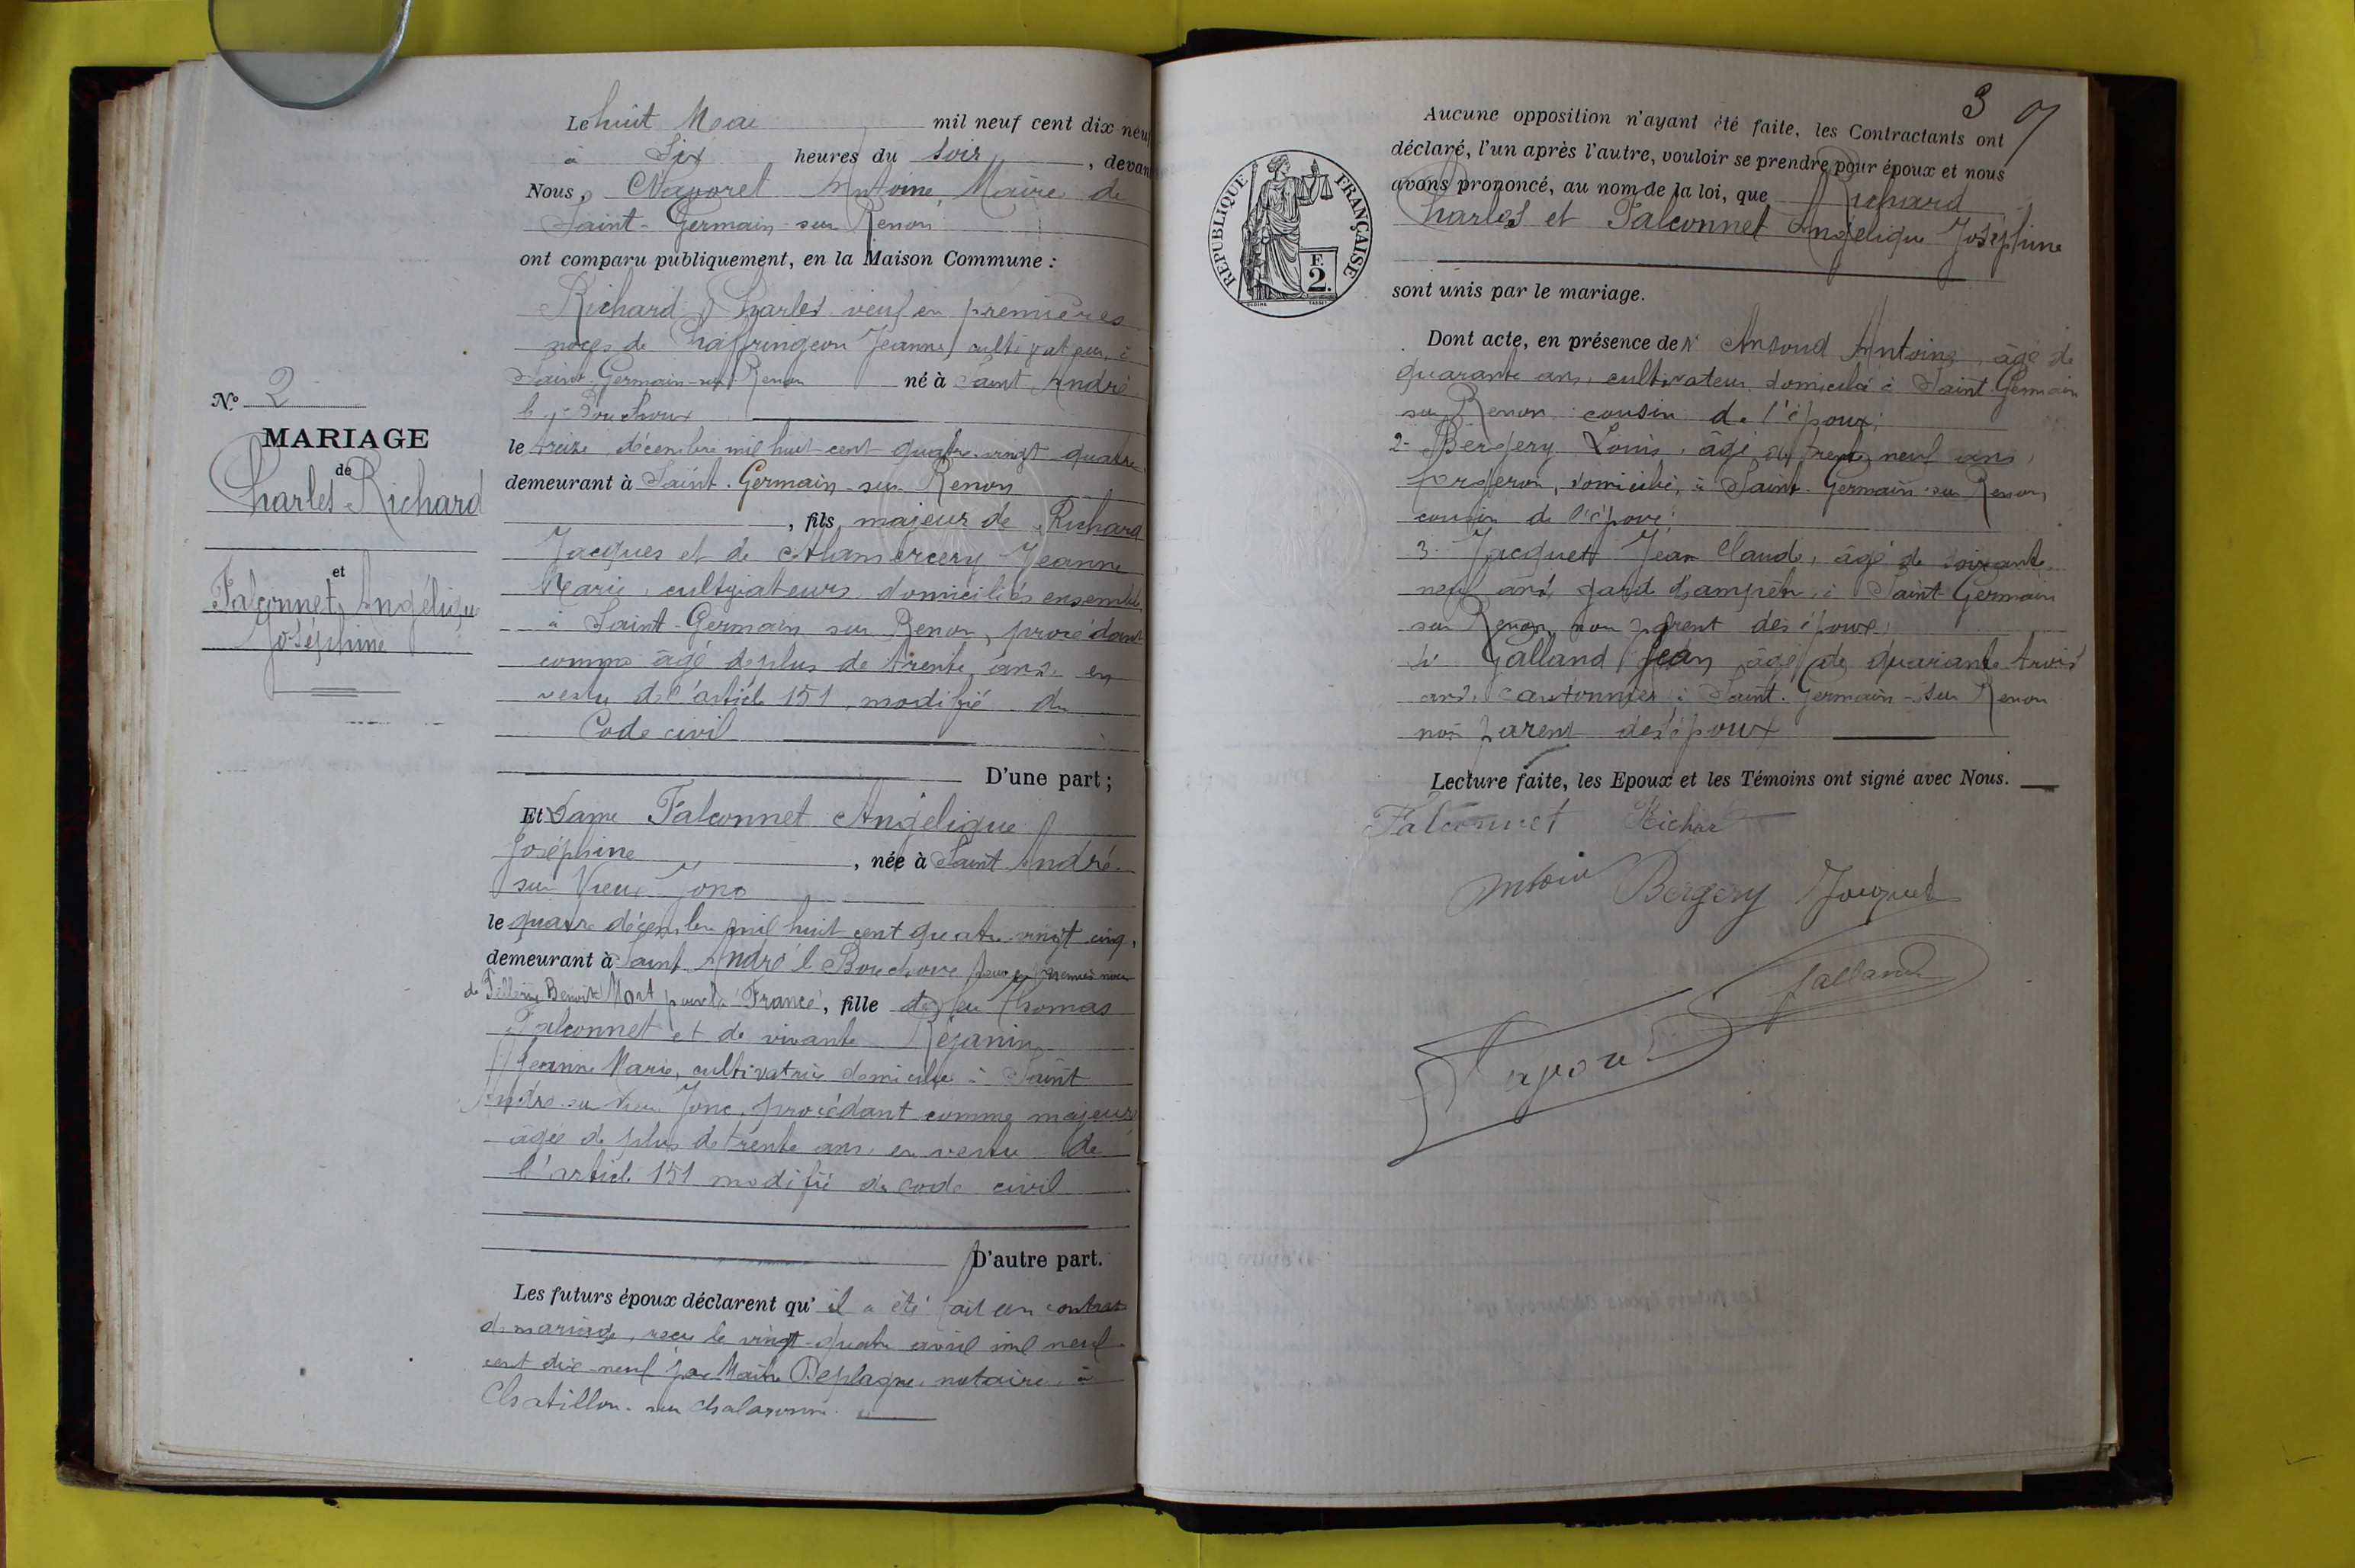 N.º 2
MARIAGE
de
Charles Richard
et
Falconnet Angélique
Joséphine
Le huit Mai mil neuf cent dix-neuf
à Six heures du soir, devan
Nous, Antoine, Maire de
Saint-Germain-sur Renon
ont comparu publiquement, en la Maison Commune :
Richard Charles veuf en premières
noces de Chaffringeon Jeanne, cultivateur à
Saint-Germain-sur Renon né à Saint André
le Bouchoux
le treize décembre mil huit cent quatre-vingt quatre
demeurant à Saint-Germain-sur-Renon
, fils majeur de Richard
Jacques et de Jeanne
Marie, cultivateurs domiciliés ensemble
à Saint-Germain sur Renon, procédant
comme âgé de plus de trente ans en
vertu de l'article 151 modifié du
Code civil
D'une part ;
Et Dame Falconnet Angélique
Joséphine, née à Saint André-
sur Vieux Jonc
le quatre décembre mil huit cent quatre-vingt cinq,
demeurant à Saint André le Bouchoux veuve en premières noces
de Benoit Mort pour la France, fille de feu Thomas
Falconnet et de vivante Réjanin
Jeanne Marie, cultivatrice domiciliée à Saint
André sur Vieux Jonc, procédant comme majeure
âgée de plus de trente ans en vertu de
l'article 151 modifié du code civil
D'autre part.
Les futurs époux déclarent qu'il a été fait un contrat
de mariage, reçu le vingt-quatre avril mil neuf
cent dix-neuf par Maître Deplagne, notaire à
Chatillon-sur Chalaronne.
3
REPUBLIQUE FRANÇAISE
F.
2.
Aucune opposition n'ayant été faite, les Contractants ont
déclaré, l'un après l'autre, vouloir se prendre pour époux et nous
avons prononcé, au nom de la loi, que Richard
Charles et Falconnet Angélique Joséphine
sont unis par le mariage.
Dont acte, en présence de 1° Ansoud Antoine, âgé de
quarante ans, cultivateur domicilié à Saint Germain
sur Renon cousin de l'époux;
2- Bergery Louis, âgé de trente neuf ans,
domicilié à Saint-Germain-sur Renon,
cousin de l'époux;
3- Jacquet Jean Claude, âgé de soixante
neuf ans, gard champêtre à Saint-Germain
sur Renon, non parent des époux;
4° Galland Jean âgé de quarante trois
ans, cantonnier à Saint-Germain-sur Renon
non parent des époux
Lecture faite, les Epoux et les Témoins ont signé avec Nous.
Falconnet Richard
Bergery Jacquet
Galland